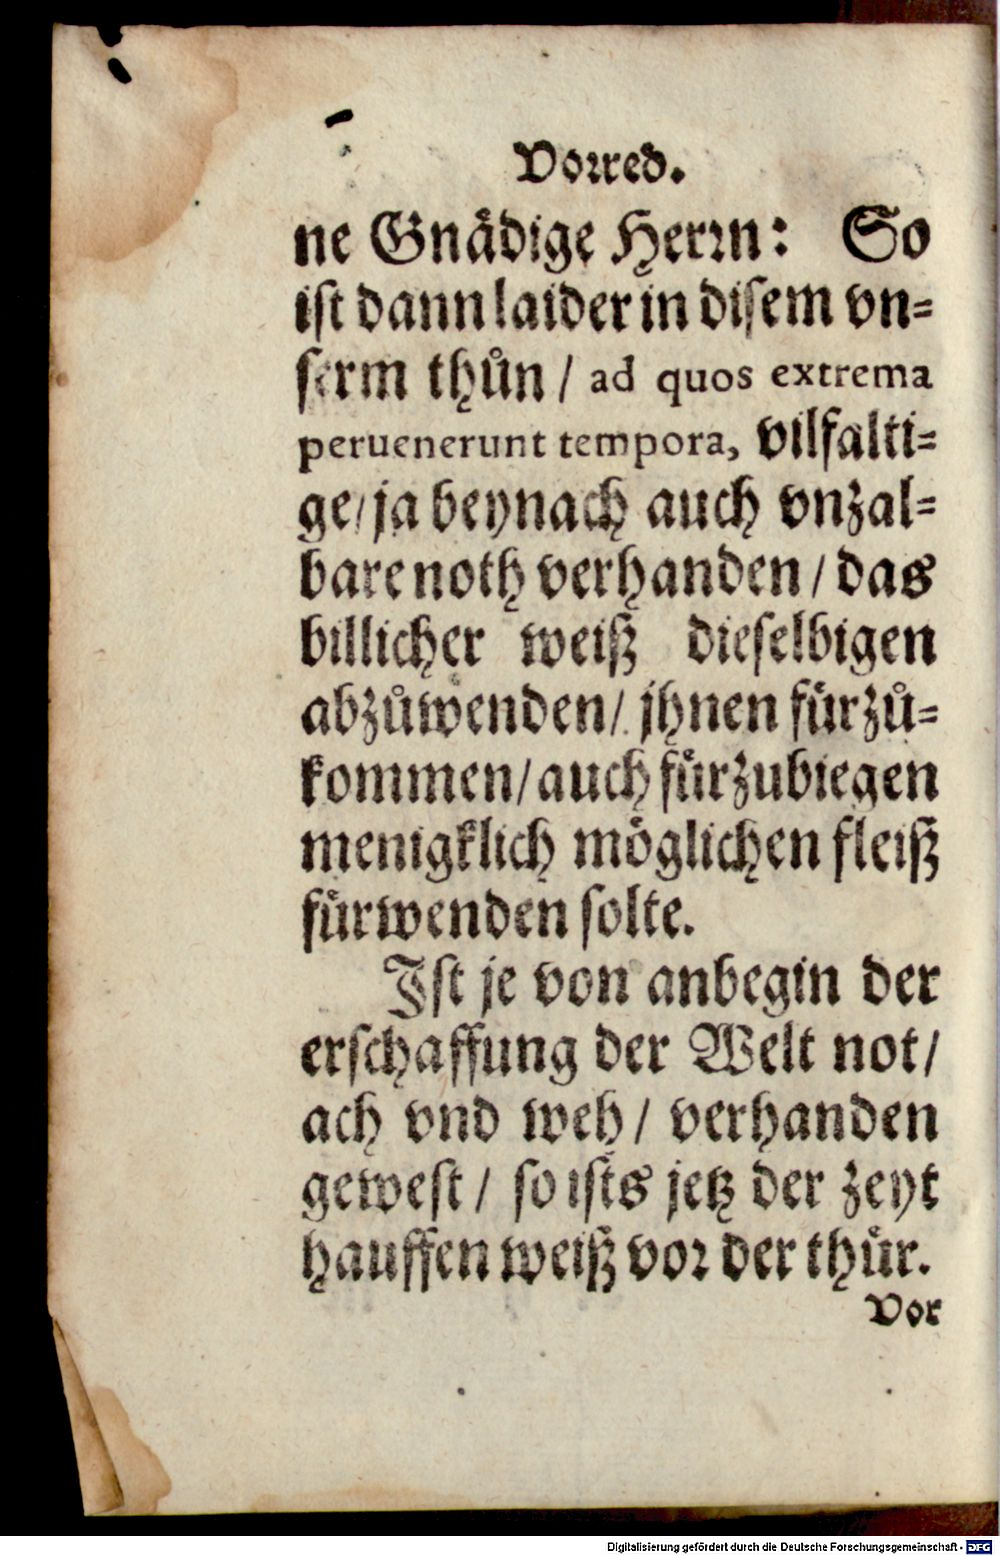 Vorred.
ne Gnädige Herrn: So
ist dann laider in disem vn=
serm thůn / ad quos extrema
peruenerunt tempora, vilfalti=
ge / ja beynach auch vnzal=
bare noth verhanden / das
billicher weiß dieselbigen
abzůwenden / jhnen fürzů=
kommen / auch fürzubiegen
menigklich möglichen fleiß
fürwenden solte.
Ist je von anbegin der
erschaffung der Welt not /
ach vnd weh / verhanden
gewest / so ists jetz der zeyt
hauffen weiß vor der thür.
Vor
Digitalisierung gefördert durch die Deutsche Forschungsgemeinschaft - DFG